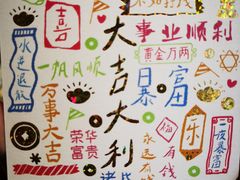 吉
水逆退散
一帆风顺
万事大吉
荣华
富贵
大吉大利
事业顺利
黄金万两
日暴富
福
永远有钱
乐
一夜暴富